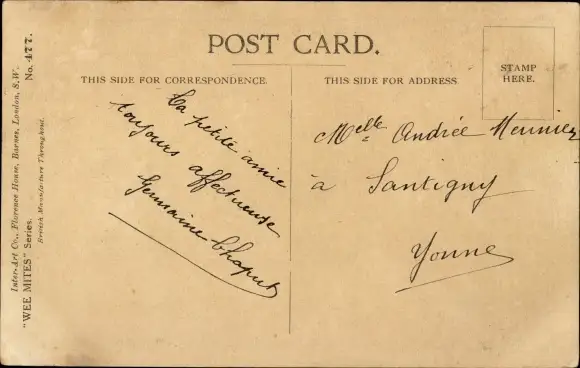 POST CARD.
THIS SIDE FOR CORRESPONDENCE.
THIS SIDE FOR ADDRESS
STAMP
HERE.
Ta petite amie
toujours affectueuse
Germaine Chaput
Melle Andrée Meunier
à Santigny
Yonne
Inter-Art Co., Florence House, Barnes, London, S.W.
"WEE MITES" Series. No. 477.
British Manufacture Throughout.